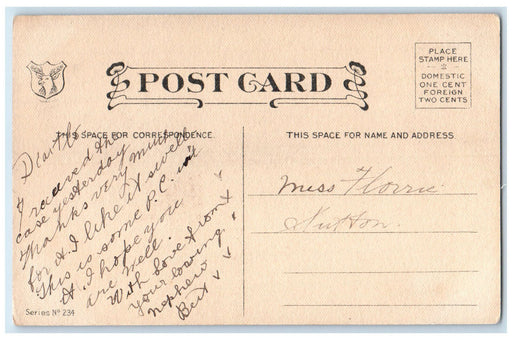 POST CARD
PLACE
STAMP HERE
DOMESTIC
ONE CENT
FOREIGN
TWO CENTS
THIS SPACE FOR CORRESPONDENCE.
I received the
case yesterday
Thanks very much
for it. I like it swell
This is some P.C. isn't
it. I hope you
are well.
With Love from
your loving
nephew
Bert
THIS SPACE FOR NAME AND ADDRESS.
Miss Florrie
Sutton.
Series Nº 234